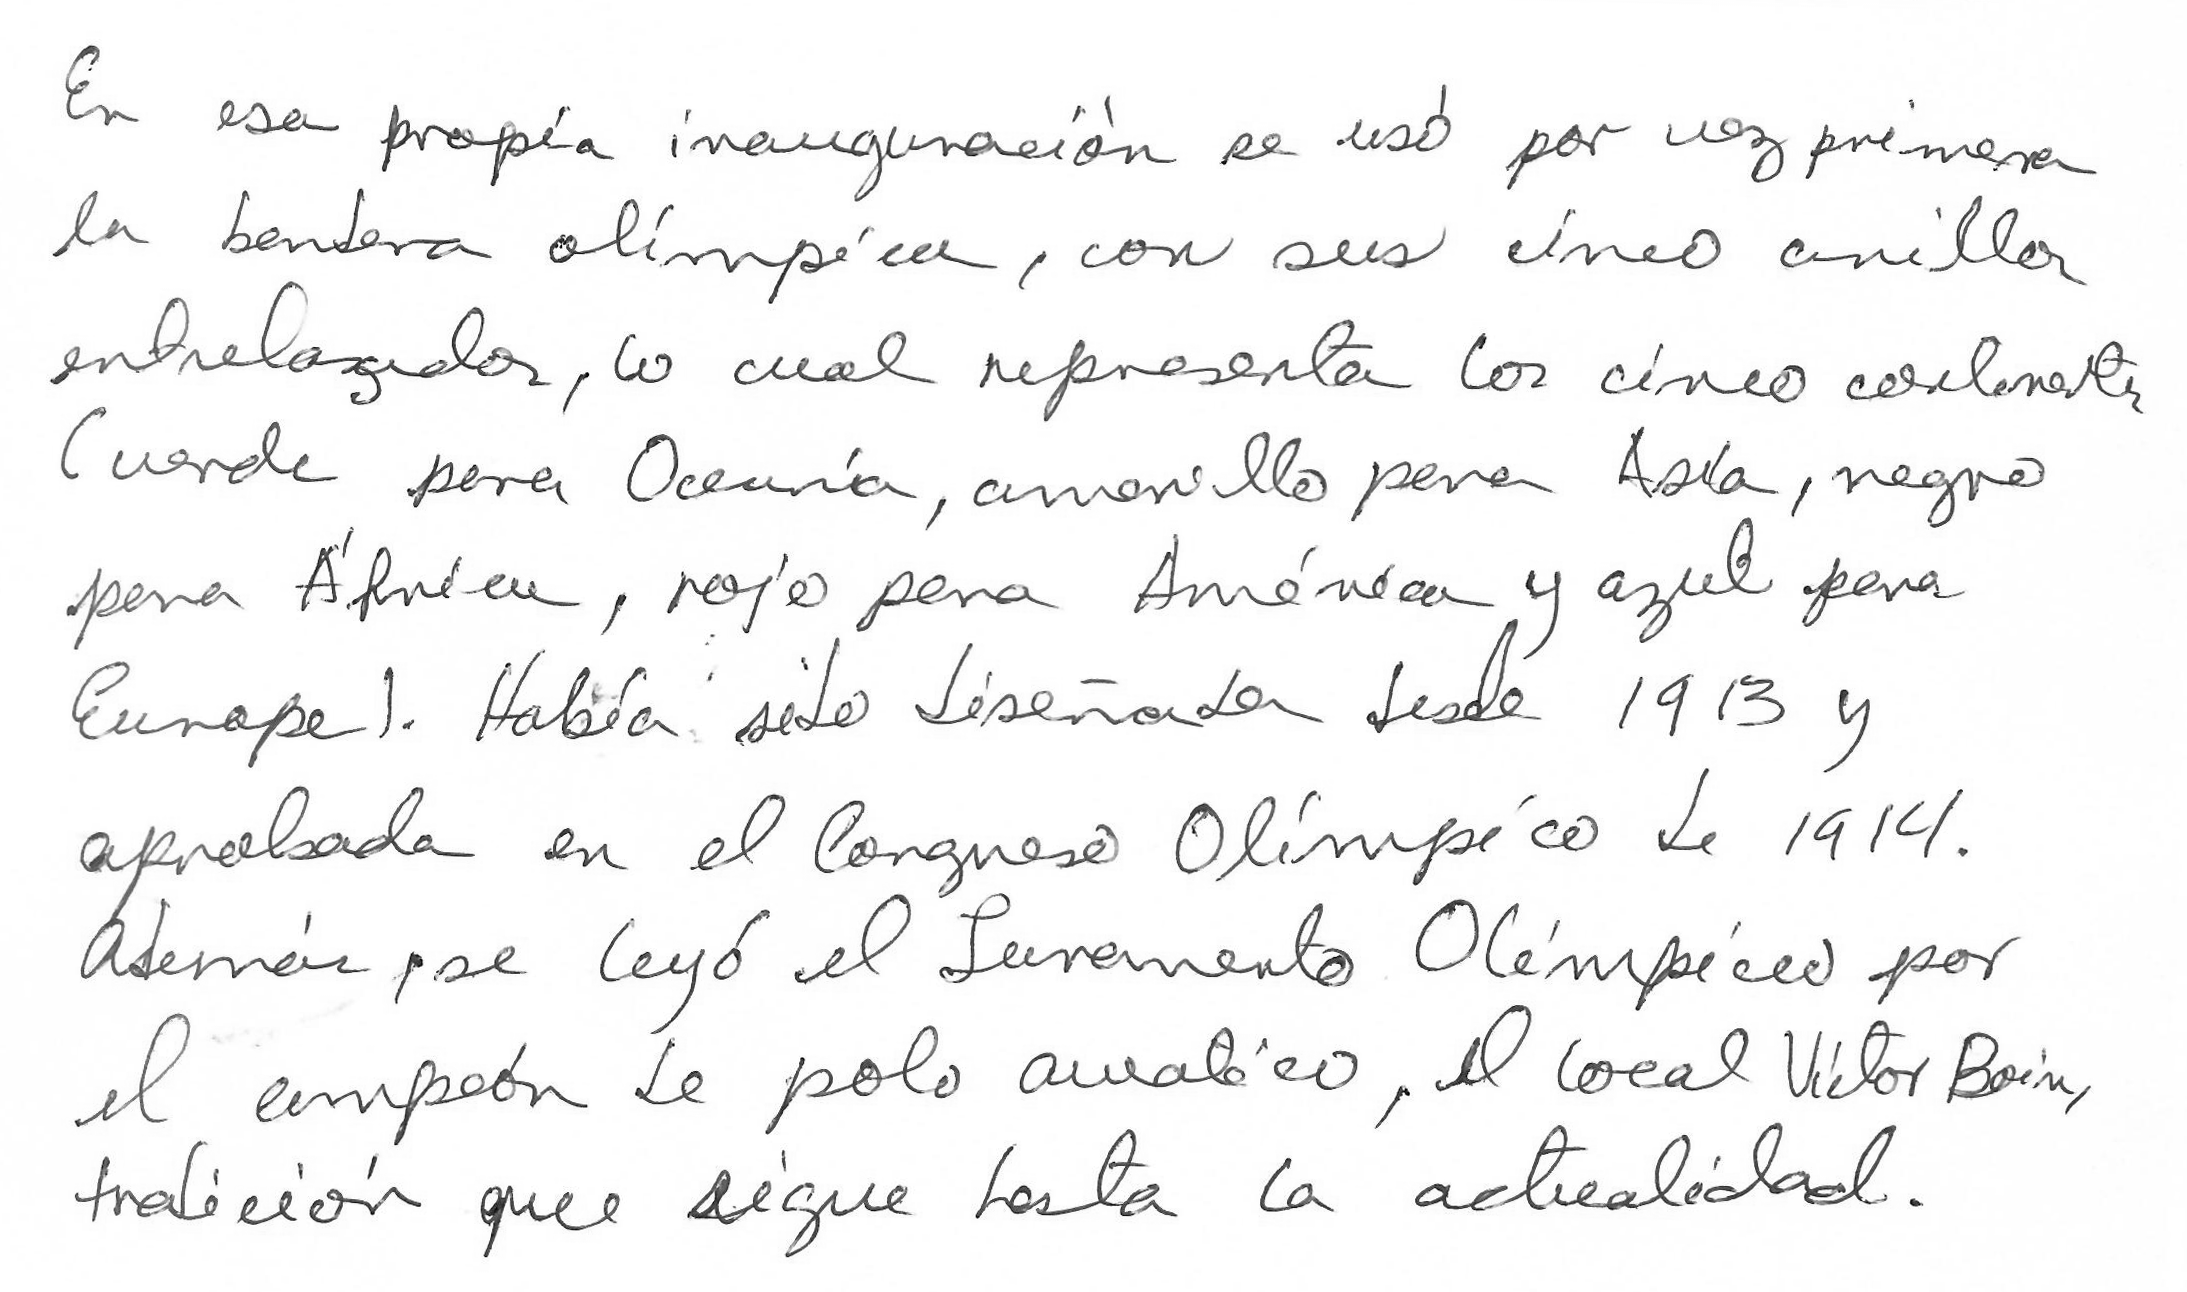 En esa propia inauguración se usó por vez primera
la bandera olímpica, con sus cinco anillos
entrelazados, lo cual representa los cinco continentes
(verde para Oceanía, amarillo para Asia, negro
para África, rojo para América y azul para
Europa). Había sido diseñada desde 1913 y
aprobada en el Congreso Olímpico de 1914.
Además, se leyó el Juramento Olímpico por
el campeón de polo acuático, el local Víctor Boin,
tradición que sigue hasta la actualidad.